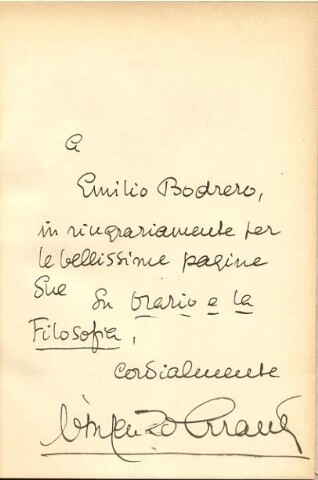 A
Emilio Bodrero,
in ringraziamento per
le bellissime pagine
Sue Su Orazio e la
Filosofia,
cordialmente
Vincenzo